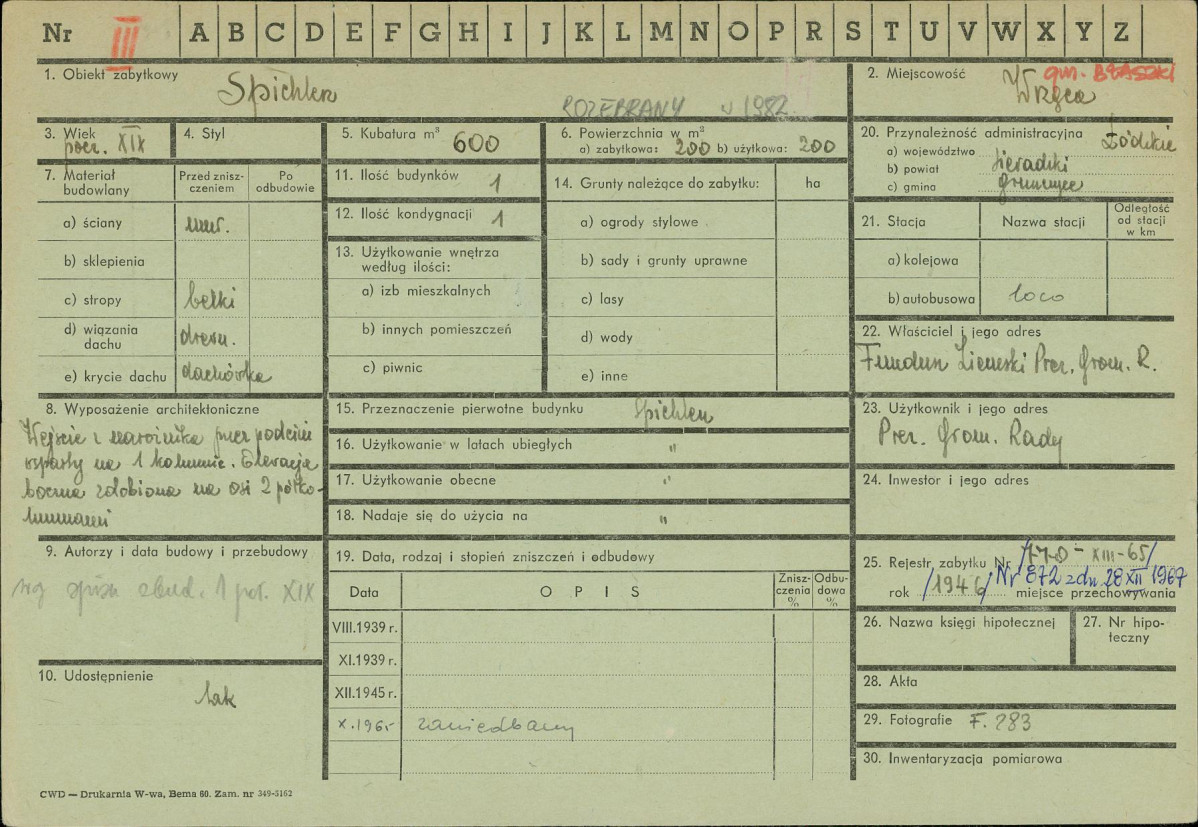 Nr III A B C D E F G H I J K L M N O P R S T U V W X Y Z
1. Obiekt zabytkowy
Spichlerz
ROZEBRANY w 1982
2. Miejscowość
gm. BŁASZKI
Wrząca
3. Wiek
pocz. XIX
4. Styl
5. Kubatura m³ 600
6. Powierzchnia w m²
a) zabytkowa: 200 b) użytkowa: 200
7. Materiał budowlany
Przed zniszczeniem
Po odbudowie
a) ściany mur.
b) sklepienia
c) stropy belki
d) wiązania dachu drewn.
e) krycie dachu dachówka
8. Wyposażenie architektoniczne
Wejście z narożnika przez podcień
wsparty na 1 kolumnie. Elewacja
boczna zdobiona na osi 2 półko-
lumnami
9. Autorzy i data budowy i przebudowy
wg spisu zbud. 1 poł. XIX
10. Udostępnienie
tak
11. Ilość budynków 1
12. Ilość kondygnacji 1
13. Użytkowanie wnętrza
według ilości:
a) izb mieszkalnych
b) innych pomieszczeń
c) piwnic
14. Grunty należące do zabytku: ha
a) ogrody stylowe
b) sady i grunty uprawne
c) lasy
d) wody
e) inne
15. Przeznaczenie pierwotne budynku Spichlerz
16. Użytkowanie w latach ubiegłych "
17. Użytkowanie obecne "
18. Nadaje się do użycia na "
19. Data, rodzaj i stopień zniszczeń i odbudowy
Data
OPIS
Zniszczenia %
Odbudowa %
VIII.1939 r.
XI.1939 r.
XII.1945 r.
X.1965 zaniedbany
20. Przynależność administracyjna
a) województwo Łódzkie
b) powiat sieradzki
c) gmina
21. Stacja
Nazwa stacji
Odległość od stacji w km
a) kolejowa
b) autobusowa loco
22. Właściciel i jego adres
Fundusz Ziemski Prez. Grom. R.
23. Użytkownik i jego adres
Prez. Grom. Rady
24. Inwestor i jego adres
25. Rejestr zabytku Nr /770-XIII-65/
rok /1946/ Nr 872 z dn. 28 XII 1967
miejsce przechowywania
26. Nazwa księgi hipotecznej
27. Nr hipoteczny
28. Akta
29. Fotografie F. 283
30. Inwentaryzacja pomiarowa
CWD — Drukarnia W-wa, Bema 60. Zam. nr 349-5162